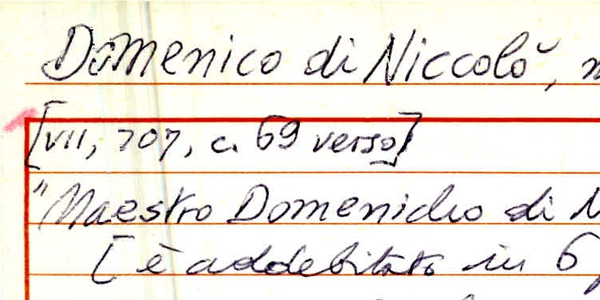 Domenico di Niccolò,
[VII, 707, c. 69 verso]
"Maestro Domenicho di N
[è addebitato in 6